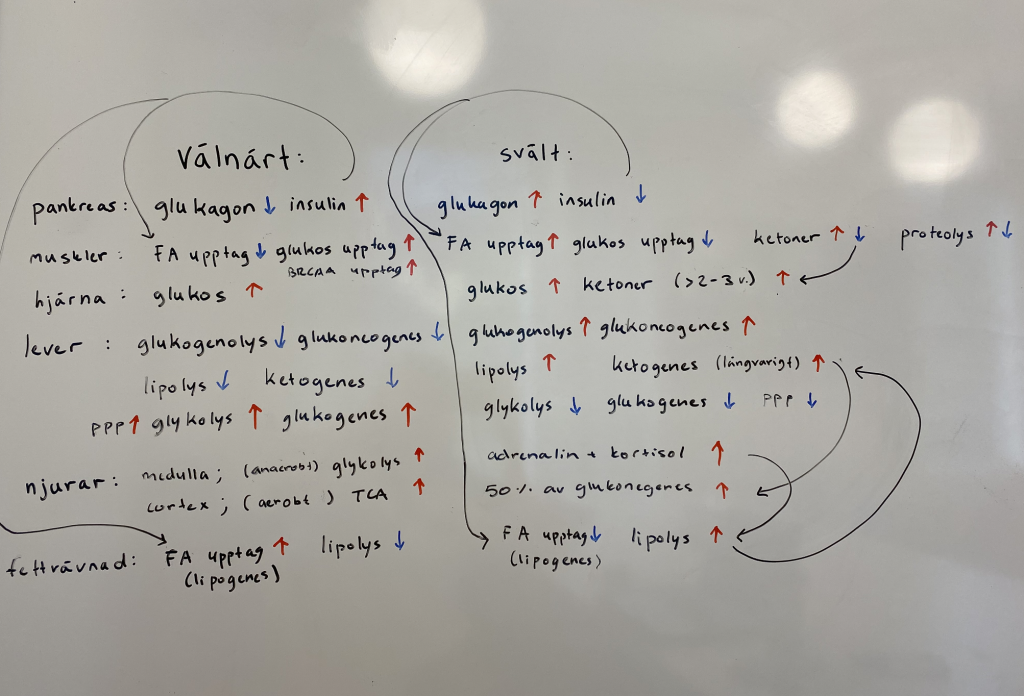 Välnärt:
svält:
pankreas: glukagon ↓ insulin ↑
glukagon ↑ insulin ↓
muskler: FA upptag ↓ glukos upptag ↑
BRCAA upptag ↑
FA upptag ↑ glukos upptag ↓ ketoner ↑ ↓ proteolys ↑ ↓
hjärna: glukos ↑
glukos ↑ ketoner (>2-3 v.) ↑
lever: glukogenolys ↓ glukoneogenes ↓
glukogenolys ↑ glukoneogenes ↑
lipolys ↓ ketogenes ↓
lipolys ↑ ketogenes (långvarigt) ↑
PPP ↑ glykolys ↑ glukogenes ↑
glykolys ↓ glukogenes ↓ PPP ↓
njurar: medulla; (anaerobt) glykolys ↑
cortex; (aerobt) TCA ↑
adrenalin + kortisol ↑
50% av glukonegenes ↑
fettvävnad: FA upptag ↑ lipolys ↓
(lipogenes)
FA upptag ↓ lipolys ↑
(lipogenes)